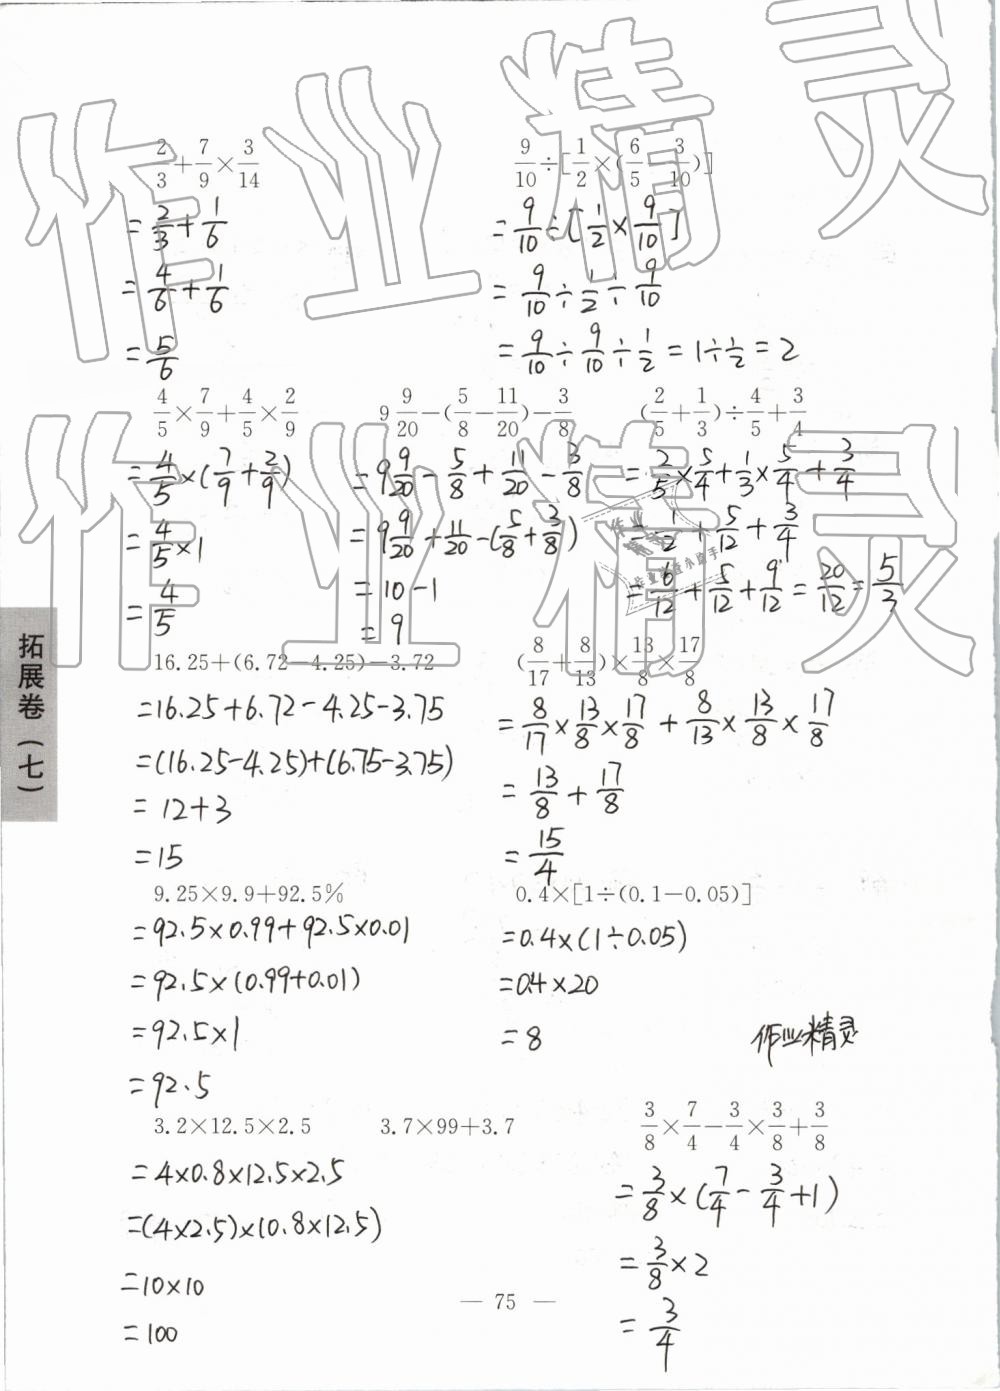 作业精灵
2/3+7/9×3/14
=2/3+1/6
=4/6+1/6
=5/6
9/10÷[1/2×(6/5-3/10)]
=9/10÷[1/2×9/10]
=9/10÷1/2÷9/10
=9/10÷9/10÷1/2=1÷1/2=2
4/5×7/9+4/5×2/9
=4/5×(7/9+2/9)
=4/5×1
=4/5
9 9/20-(5/8-11/20)-3/8
=9 9/20-5/8+11/20-3/8
=9 9/20+11/20-(5/8+3/8)
=10-1
=9
(2/5+1/3)÷4/5+3/4
=2/5×5/4+1/3×5/4+3/4
=1/2+5/12+3/4
=6/12+5/12+9/12=20/12=5/3
作业精灵
拓展卷(七)
16.25+(6.72-4.25)-3.72
=16.25+6.72-4.25-3.75
=(16.25-4.25)+(6.75-3.75)
=12+3
=15
(8/17+8/13)×13/8×17/8
=8/17×13/8×17/8+8/13×13/8×17/8
=13/8+17/8
=15/4
9.25×9.9+92.5%
=92.5×0.99+92.5×0.01
=92.5×(0.99+0.01)
=92.5×1
=92.5
0.4×[1÷(0.1-0.05)]
=0.4×(1÷0.05)
=0.4×20
=8
作业精灵
3.2×12.5×2.5
=4×0.8×12.5×2.5
=(4×2.5)×(0.8×12.5)
=10×10
=100
3.7×99+3.7
3/8×7/4-3/4×3/8+3/8
=3/8×(7/4-3/4+1)
=3/8×2
=3/4
— 75 —